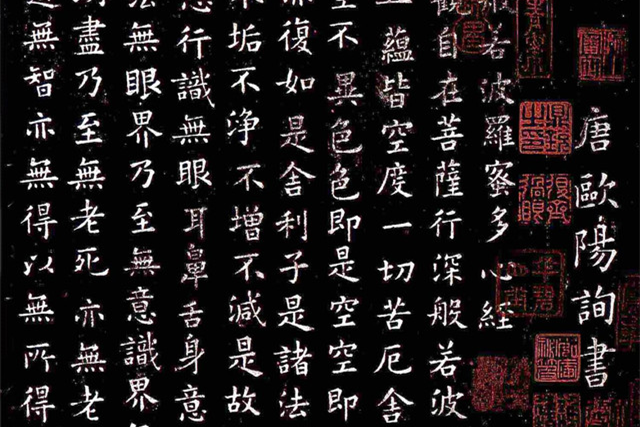 唐歐陽詢書
般若波羅蜜多心經
觀自在菩薩行深般若波
蘊皆空度一切苦厄舍
空不異色色即是空空即
亦復如是舍利子是諸法
不垢不淨不增不減是故
行識無眼耳鼻舌身意
法無眼界乃至無意識界無
盡乃至無老死亦無老
無智亦無得以無所得